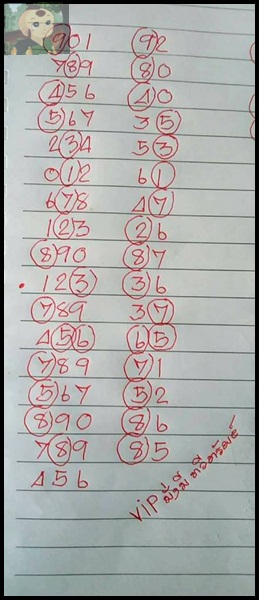 901 92
789 80
456 40
567 35
234 53
012 61
678 47
123 26
890 87
123 36
789 37
456 65
789 71
567 52
890 86
789 85
456
VIP